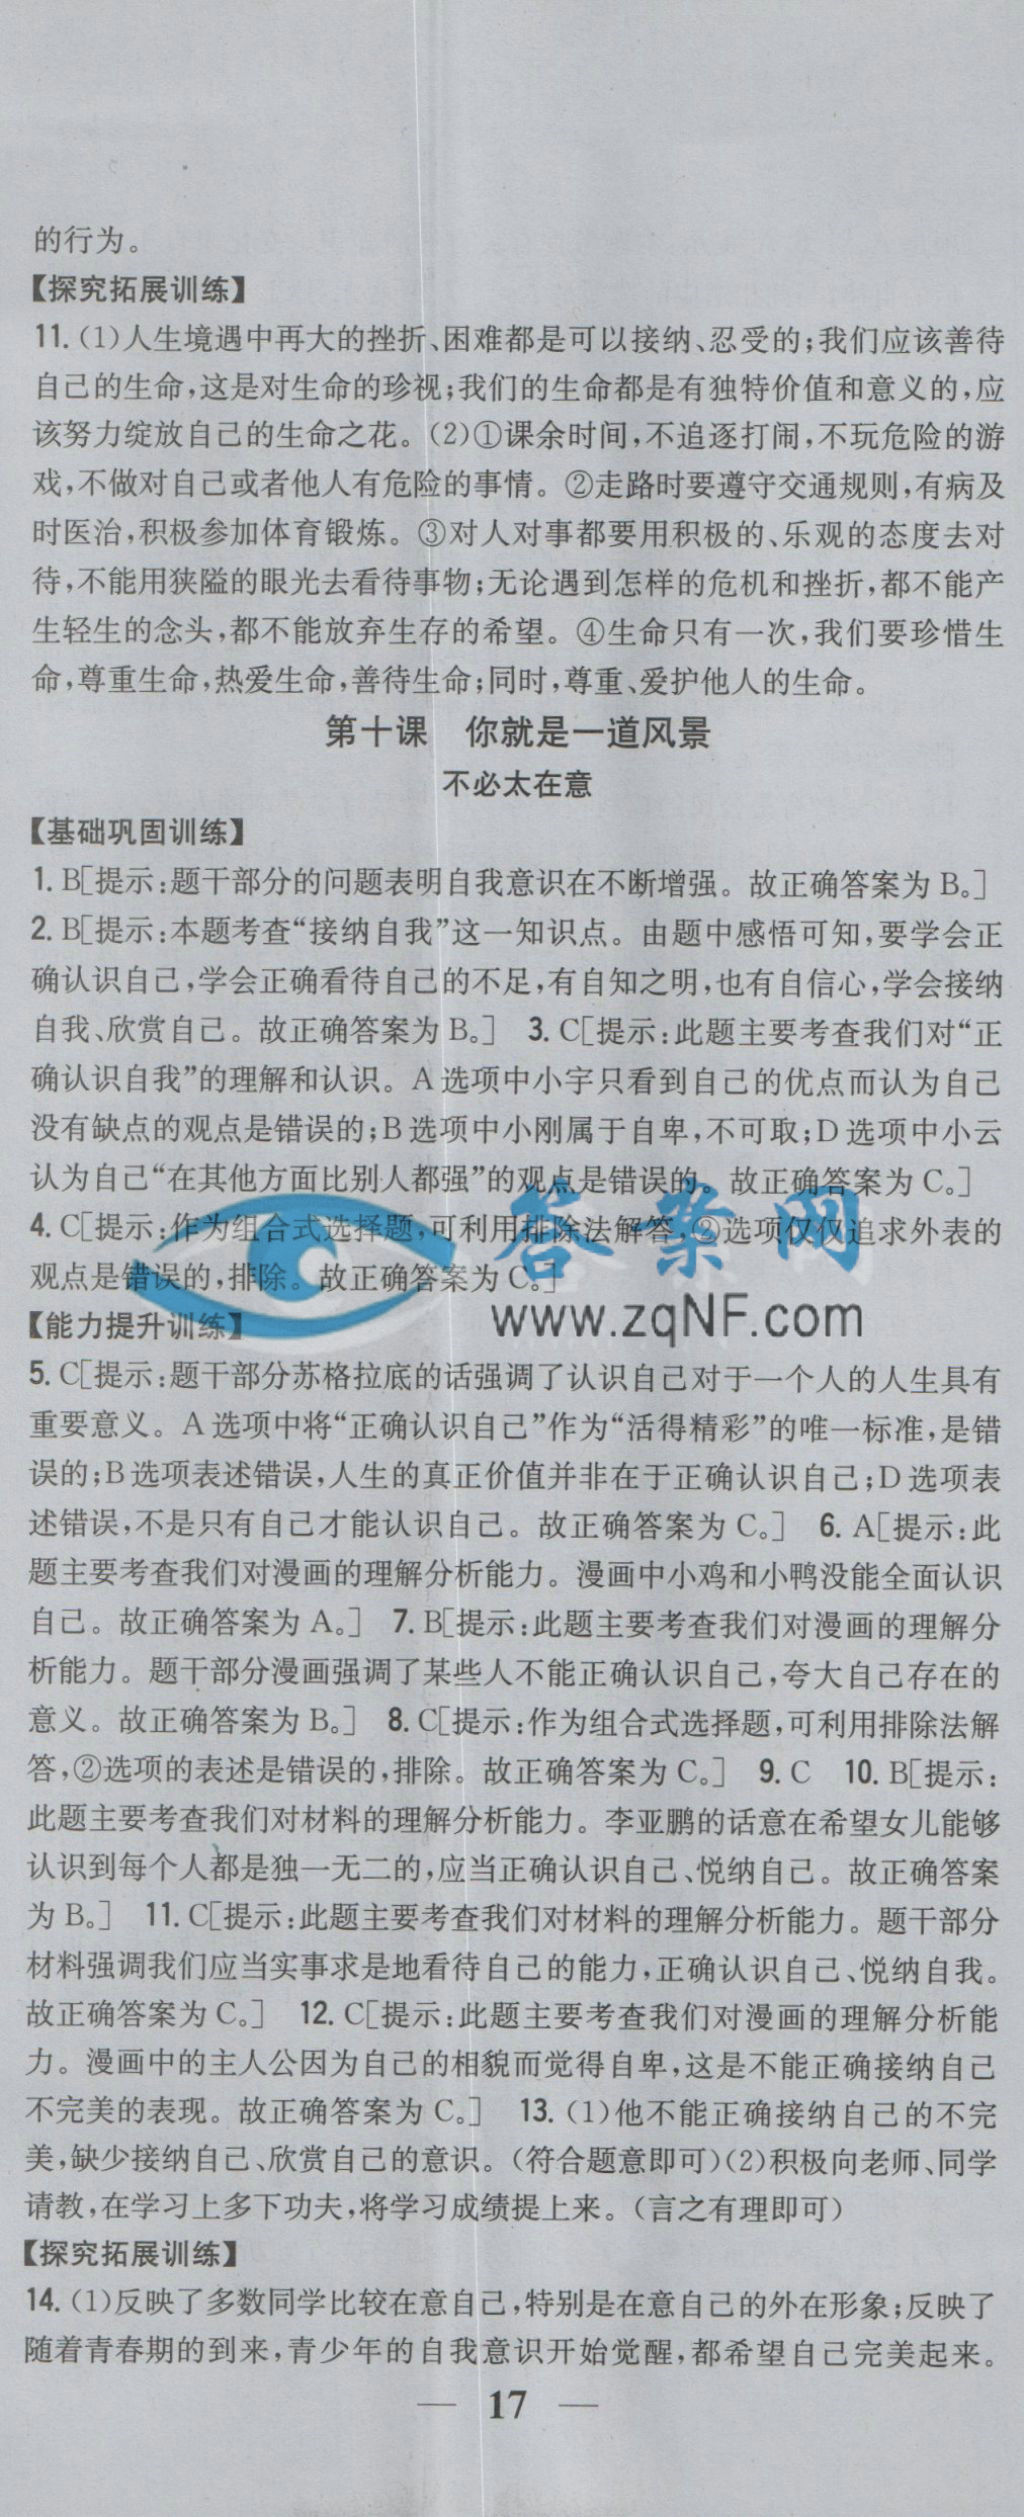 的行为。
【探究拓展训练】
11. (1)人生境遇中再大的挫折、困难都是可以接纳、忍受的;我们应该善待
自己的生命,这是对生命的珍视;我们的生命都是有独特价值和意义的,应
该努力绽放自己的生命之花。(2)①课余时间,不追逐打闹,不玩危险的游
戏,不做对自己或者他人有危险的事情。②走路时要遵守交通规则,有病及
时医治,积极参加体育锻炼。③对人对事都要用积极的、乐观的态度去对
待,不能用狭隘的眼光去看待事物;无论遇到怎样的危机和挫折,都不能产
生轻生的念头,都不能放弃生存的希望。④生命只有一次,我们要珍惜生
命,尊重生命,热爱生命,善待生命;同时,尊重、爱护他人的生命。
第十课 你就是一道风景
不必太在意
【基础巩固训练】
1. B[提示:题干部分的问题表明自我意识在不断增强。故正确答案为 B。]
2. B[提示:本题考查“接纳自我”这一知识点。由题中感悟可知,要学会正
确认识自己,学会正确看待自己的不足,有自知之明,也有自信心,学会接纳
自我、欣赏自己。故正确答案为 B。] 3. C[提示:此题主要考查我们对“正
确认识自我”的理解和认识。A 选项中小宇只看到自己的优点而认为自己
没有缺点的观点是错误的;B 选项中小刚属于自卑,不可取;D 选项中小云
认为自己“在其他方面比别人都强”的观点是错误的。故正确答案为 C。]
4. C[提示:作为组合式选择题,可利用排除法解答,②选项仅仅追求外表的
观点是错误的,排除。故正确答案为 C。]
答案网
www.zqNF.com
【能力提升训练】
5. C[提示:题干部分苏格拉底的话强调了认识自己对于一个人的人生具有
重要意义。A 选项中将“正确认识自己”作为“活得精彩”的唯一标准,是错
误的;B 选项表述错误,人生的真正价值并非在于正确认识自己;D 选项表
述错误,不是只有自己才能认识自己。故正确答案为 C。] 6. A[提示:此
题主要考查我们对漫画的理解分析能力。漫画中小鸡和小鸭没能全面认识
自己。故正确答案为 A。] 7. B[提示:此题主要考查我们对漫画的理解分
析能力。题干部分漫画强调了某些人不能正确认识自己,夸大自己存在的
意义。故正确答案为 B。] 8. C[提示:作为组合式选择题,可利用排除法解
答,②选项的表述是错误的,排除。故正确答案为 C。] 9. C 10. B[提示:
此题主要考查我们对材料的理解分析能力。李亚鹏的话意在希望女儿能够
认识到每个人都是独一无二的,应当正确认识自己、悦纳自己。故正确答案
为 B。] 11. C[提示:此题主要考查我们对材料的理解分析能力。题干部分
材料强调我们应当实事求是地看待自己的能力,正确认识自己、悦纳自我。
故正确答案为 C。] 12. C[提示:此题主要考查我们对漫画的理解分析能
力。漫画中的主人公因为自己的相貌而觉得自卑,这是不能正确接纳自己
不完美的表现。故正确答案为 C。] 13. (1)他不能正确接纳自己的不完
美,缺少接纳自己、欣赏自己的意识。(符合题意即可)(2)积极向老师、同学
请教,在学习上多下功夫,将学习成绩提上来。(言之有理即可)
【探究拓展训练】
14. (1)反映了多数同学比较在意自己,特别是在意自己的外在形象;反映了
随着青春期的到来,青少年的自我意识开始觉醒,都希望自己完美起来。
— 17 —